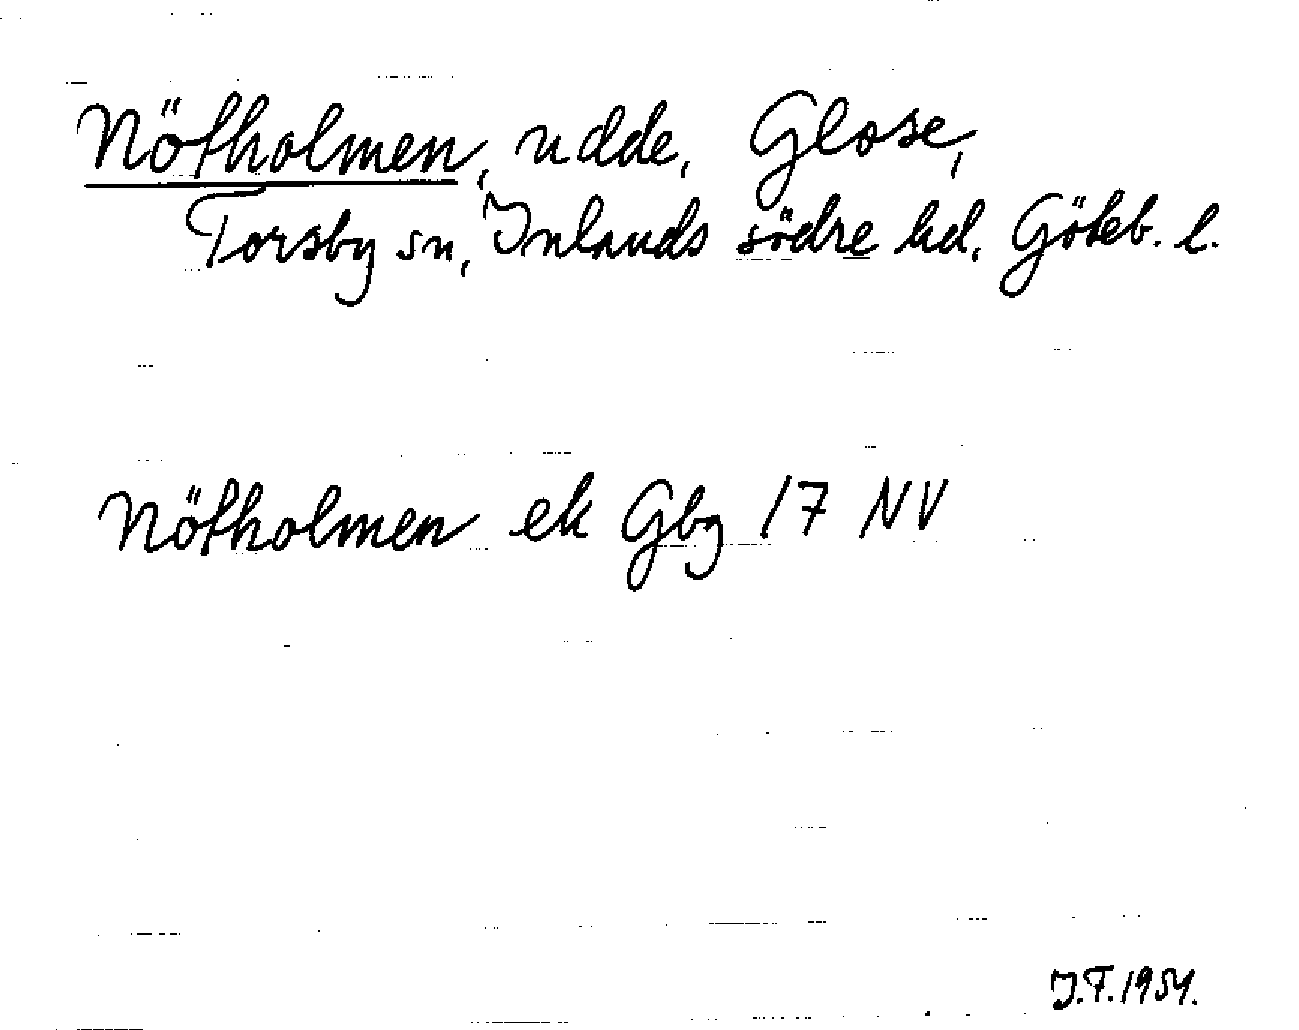 Nötholmen, udde, Glose,
Torsby sn, Inlands södre hd, Göteb. l.
Nötholmen ek Gbg 17 NV
J.F. 1954.